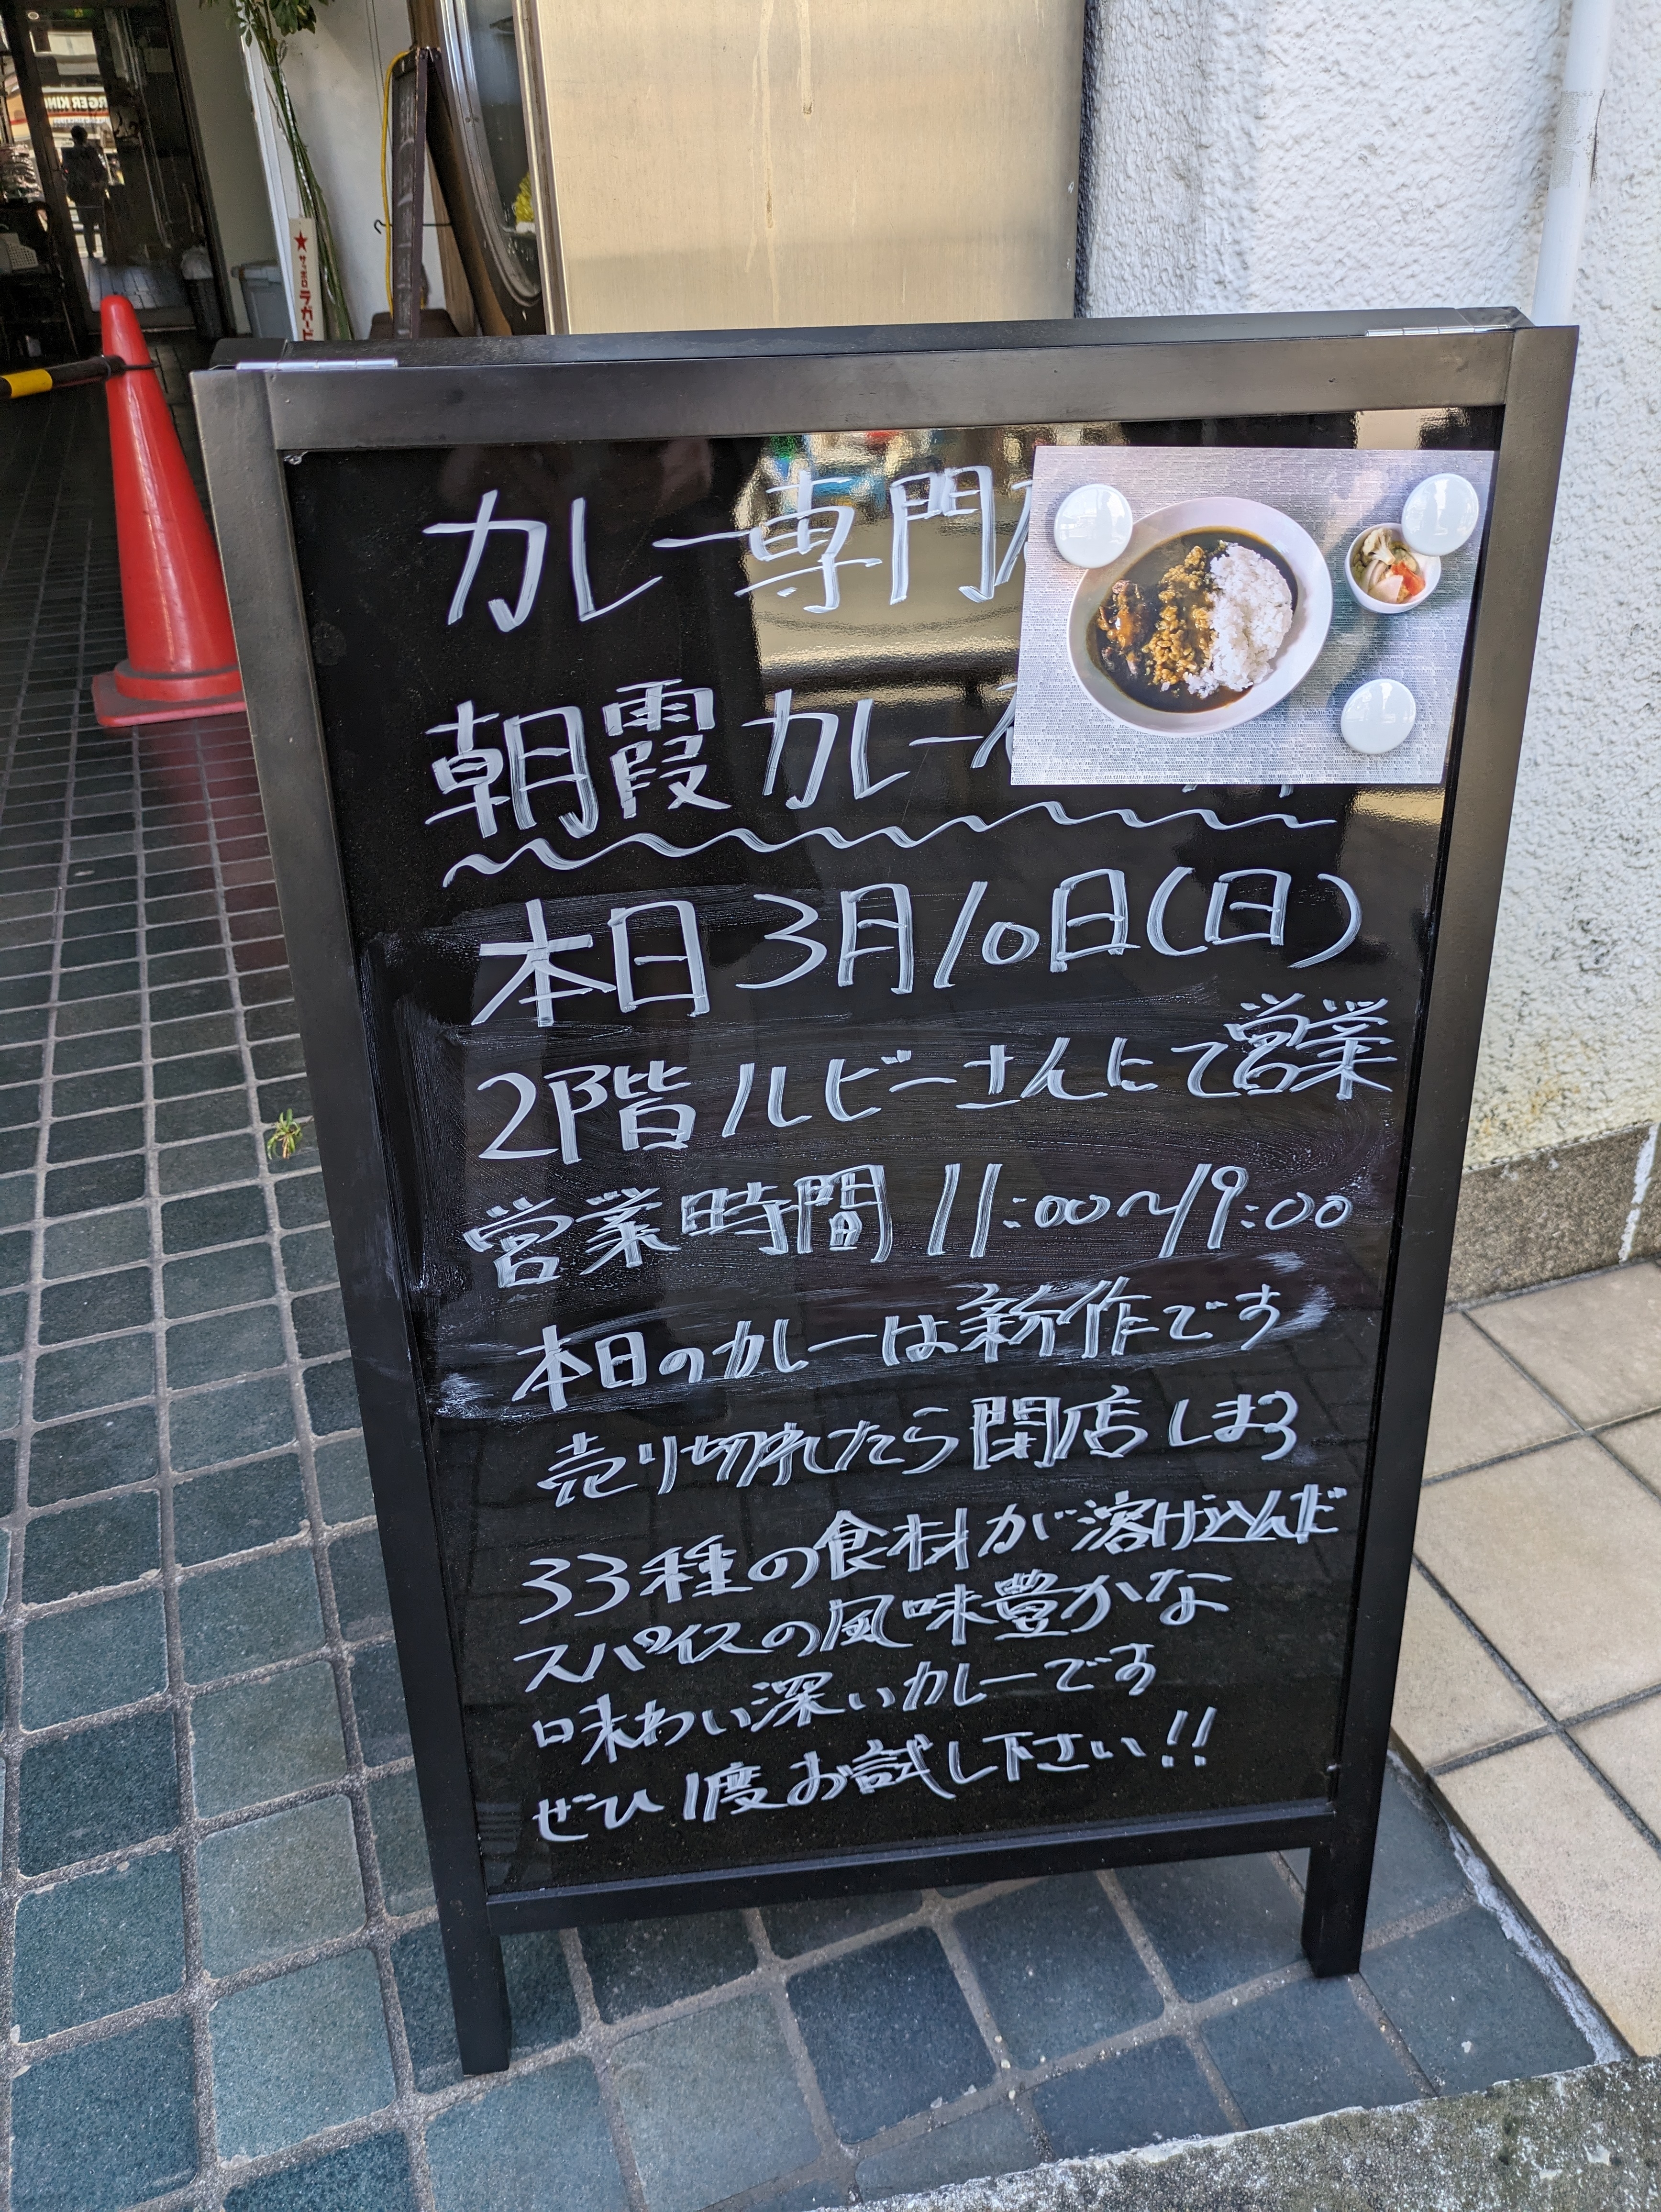 カレー専門
朝霞カレー
本日3月10日(日)
2階ルビーさんにて営業
営業時間 11:00〜19:00
本日のカレーは新作です
売り切れたら閉店しまる
33種の食材が溶け込んだ
スパイスの風味豊かな
味わい深いカレーです
ぜひ1度お試し下さい!!
★サッポロラガー